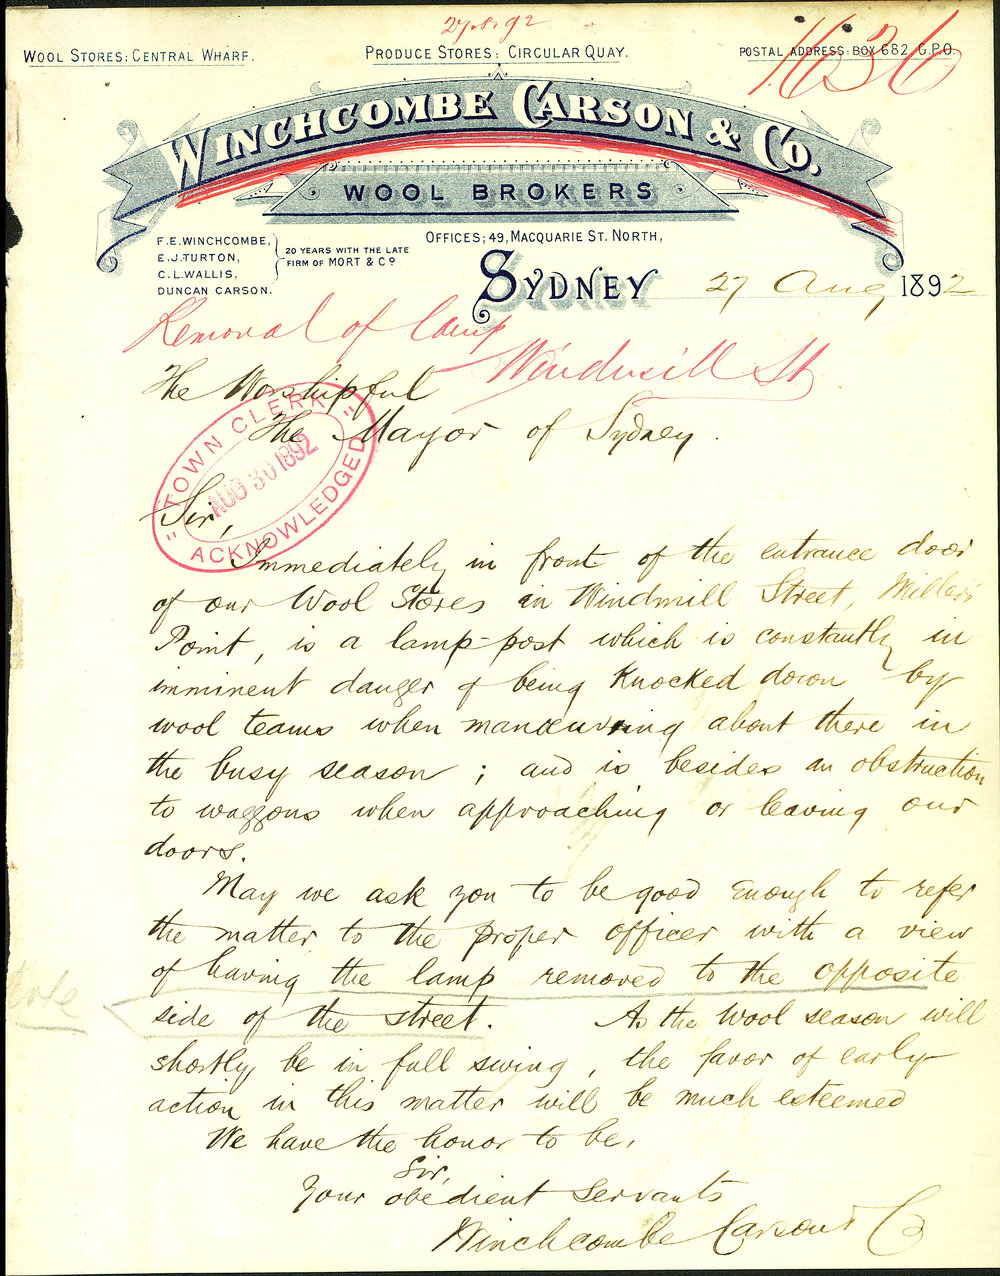 27.8.92
1636
WOOL STORES: CENTRAL WHARF.
PRODUCE STORES: CIRCULAR QUAY.
POSTAL ADDRESS: BOX 682, G.P.O.
WINCHCOMBE CARSON & CO.
WOOL BROKERS
F.E. WINCHCOMBE,
E.J. TURTON,
C.L. WALLIS,
DUNCAN CARSON.
20 YEARS WITH THE LATE
FIRM OF MORT & Co
OFFICES; 49, MACQUARIE ST. NORTH,
SYDNEY 27 Aug 1892
Removal of lamp
Windmill St
The Worshipful
The Mayor of Sydney.
"TOWN CLERK"
AUG 30 1892
ACKNOWLEDGED
Sir,
Immediately in front of the entrance door
of our Wool Stores in Windmill Street, Miller's
Point, is a lamp-post which is constantly in
imminent danger of being Knocked down by
wool teams when manœuvring about there in
the busy season; and is besides an obstruction
to waggons when approaching or leaving our
doors.
May we ask you to be good enough to refer
the matter to the proper officer with a view
of having the lamp removed to the opposite
side of the street. As the Wool season will
shortly be in full swing, the favor of early
action in this matter will be much esteemed
We have the honor to be,
Sir,
Your obedient Servants
Winchcombe Carson & Co